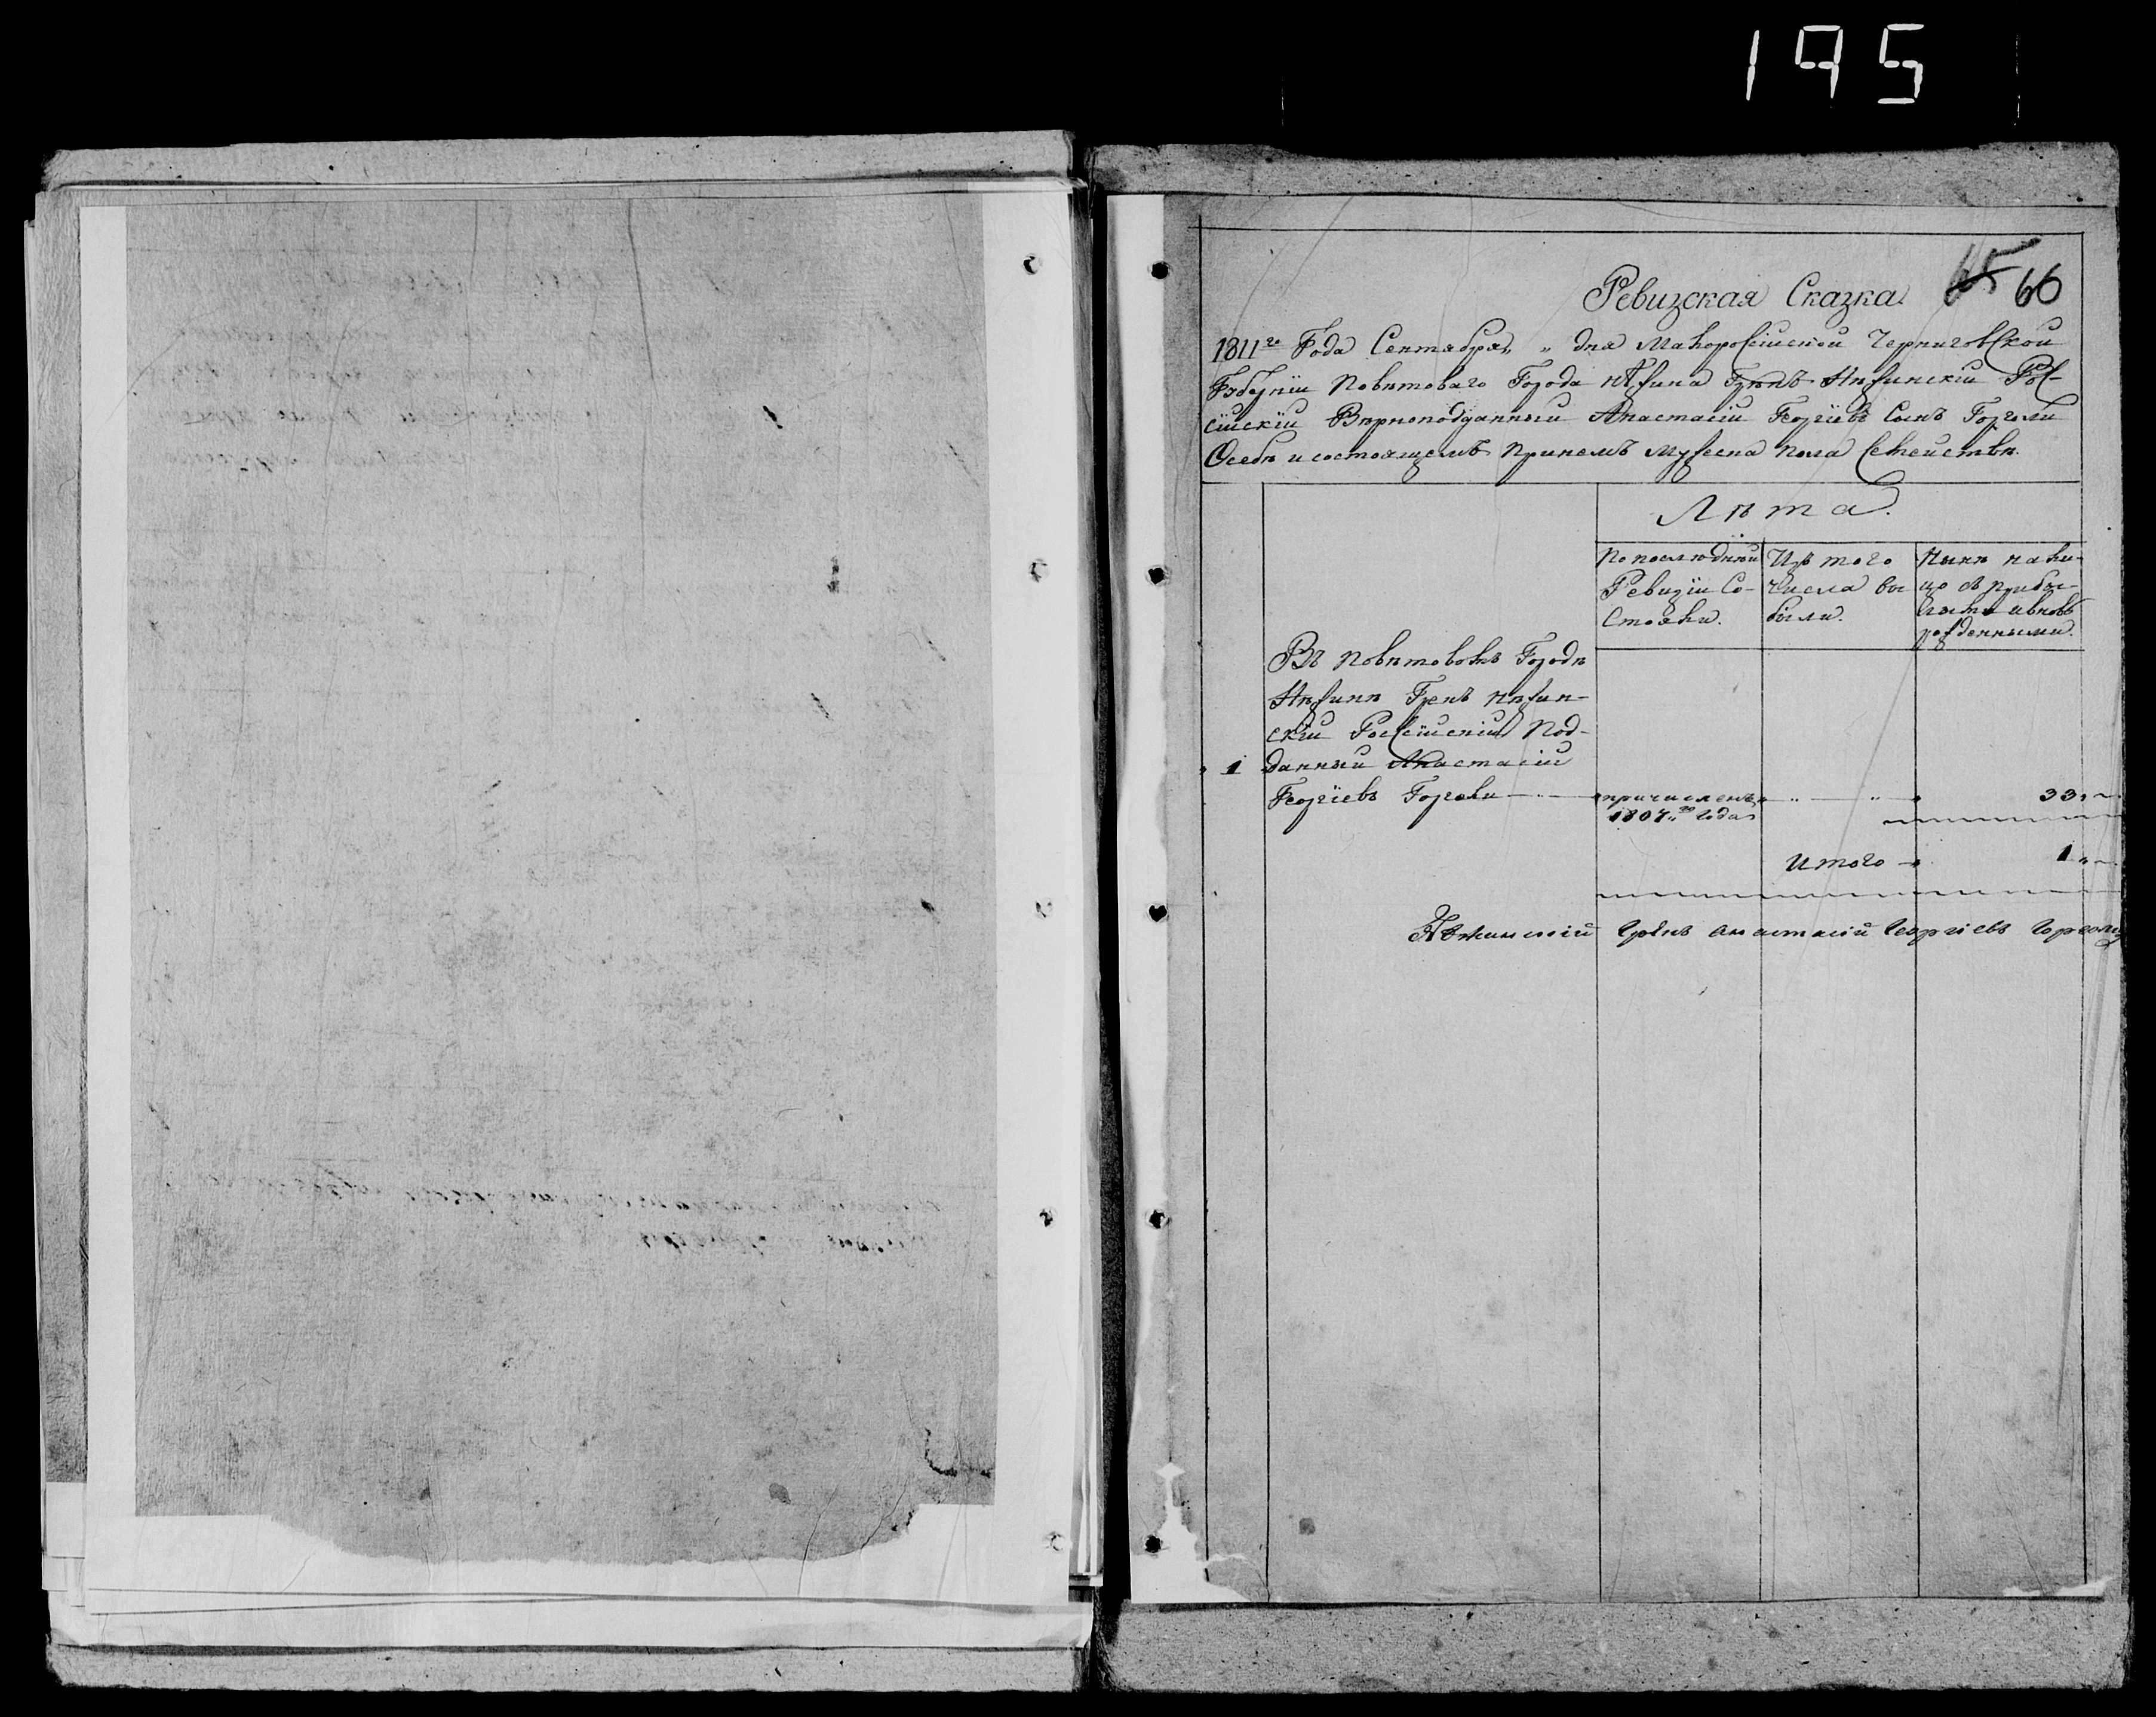 195
65 66
Ревизская Сказка
1811го Года Сентября „ „ дня Малоросіиской Черниговской
Губерніи Повѣтоваго Города Нѣжина Грѣкъ Нѣжинскіи Рос-
сіискіи Вѣрноподданныи Анастасіи Георгіевъ Сынъ Горголи
О себѣ и состоящемъ принемъ мужеска пола Семействѣ.
Лѣта.
По послѣдней Ревизіи Со-стояли.
Изъ того числа вы были.
Нынѣ нали-цо съ прибы-лыми ивновь рожденными.
Въ повѣтовомъ Городѣ
Нѣжинѣ Грекъ Нѣжин-
скіи Россіискіи Под-
1 данныи Анастасіи
Георгіевъ Горголи — причисленъ „ — „ 33 „
1807го года
Итого — 1 „
Нѣжинскій Грѣкъ Анастасій Георгіевъ Горголи